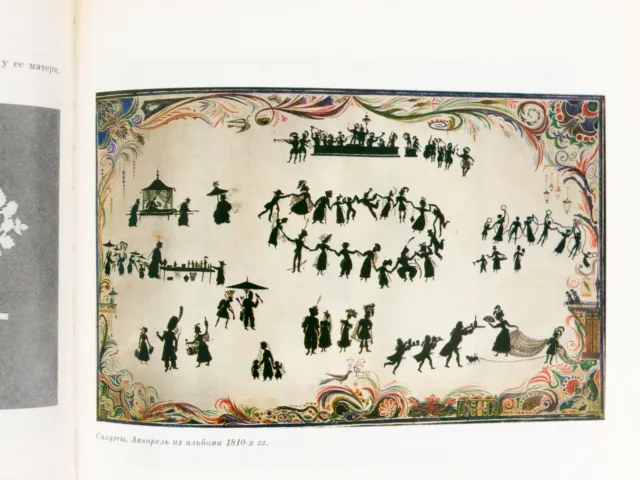 у ее матери,
Силуэты. Акварель из альбома 1810-х гг.